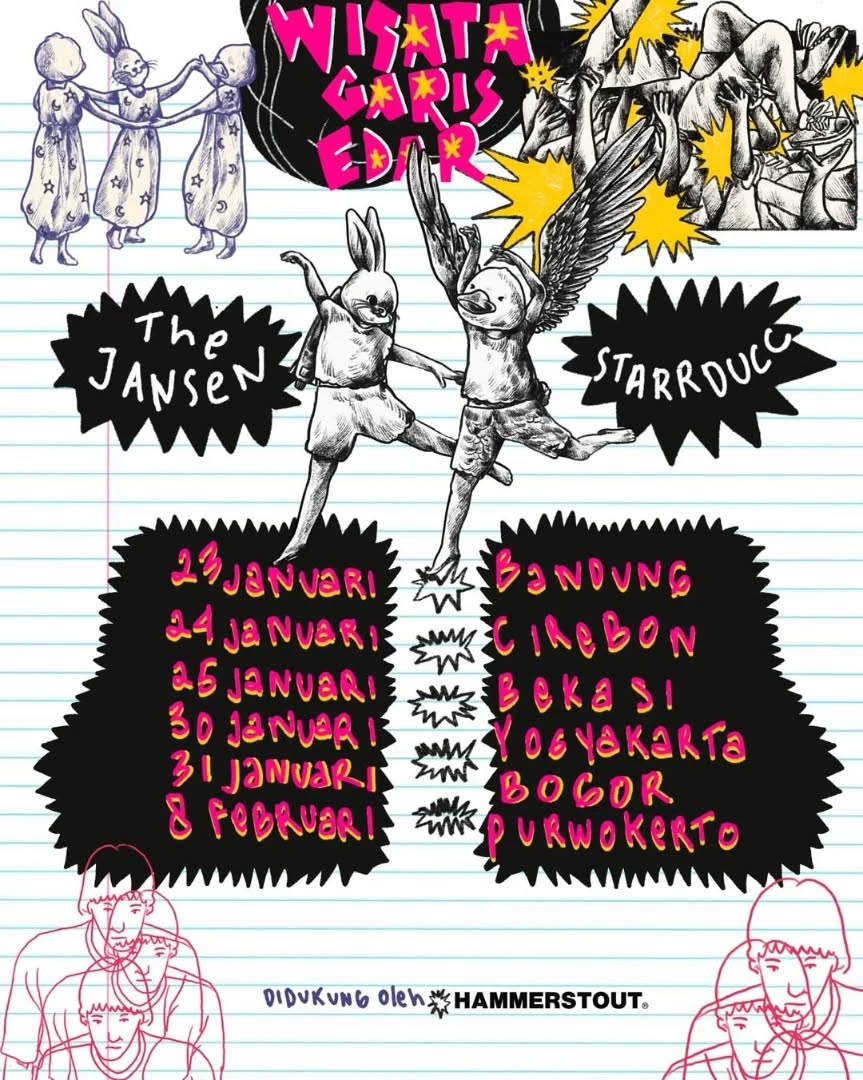 WISATA
GARIS
EDAR
The
JANSEN
STARRDUCC
23 JANUARI BANDUNG
24 JANUARI CIREBON
25 JANUARI BEKASI
30 JANUARI YOGYAKARTA
31 JANUARI BOGOR
8 FEBRUARI PURWOKERTO
DIDUKUNG oleh HAMMERSTOUT®